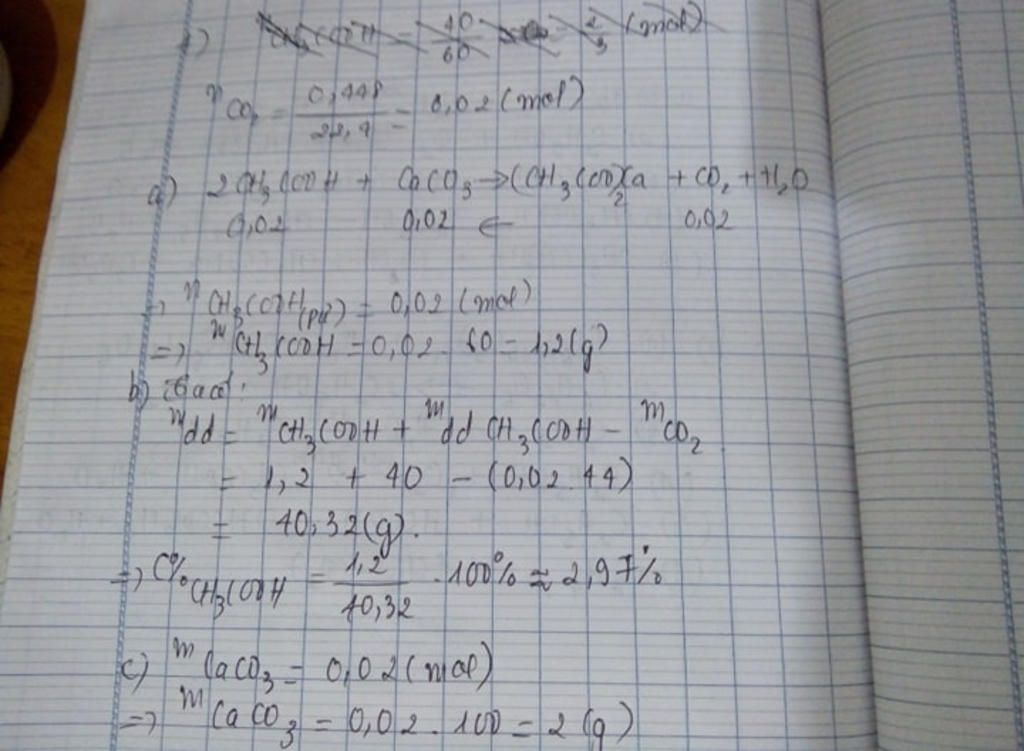 nCO₂ = 0,448 / 22,4 = 0,02 (mol)
a) 2CH₃COOH + CaCO₃ → (CH₃COO)₂Ca + CO₂ + H₂O
0,02 0,02 ← 0,02
=> nCH₃COOH(pư) = 0,02 (mol)
=> mCH₃COOH = 0,02 . 60 = 1,2 (g)
b)
mdd = mCH₃COOH + mdd CH₃COOH - mCO₂
= 1,2 + 40 - (0,02 . 44)
= 40,32 (g).
=> C%CH₃COOH = 1,2 / 40,32 . 100% ≈ 2,97%
c) mCaCO₃ = 0,02 (mol)
=> mCaCO₃ = 0,02 . 100 = 2 (g)